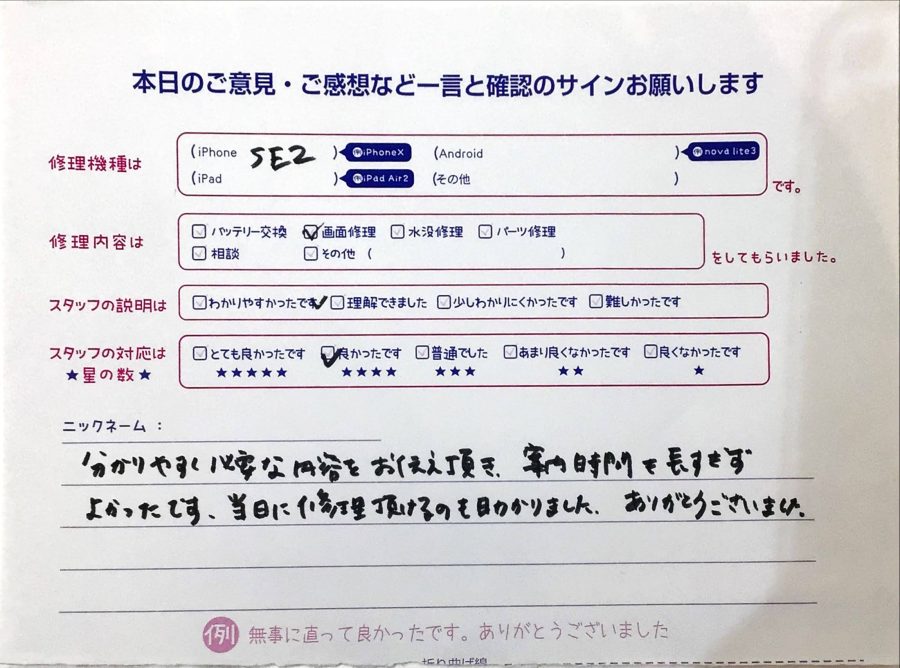 本日のご意見・ご感想など一言と確認のサインお願いします
修理機種は
(iPhone SE2 ) 例iPhoneX (Android ) 例nova lite3
(iPad ) 例iPad Air2 (その他 )
です。
修理内容は
バッテリー交換 画面修理 水没修理 パーツ修理
相談 その他 ( )
をしてもらいました。
スタッフの説明は
わかりやすかったです 理解できました 少しわかりにくかったです 難しかったです
スタッフの対応は
★星の数★
とても良かったです 良かったです 普通でした あまり良くなかったです 良くなかったです
★★★★★ ★★★★ ★★★ ★★ ★
ニックネーム：
分かりやすく必要な内容をお伝え頂き、案内時間も長すぎず
よかったです、当日に修理頂けるのも助かりました、ありがとうございました。
例 無事に直って良かったです。ありがとうございました